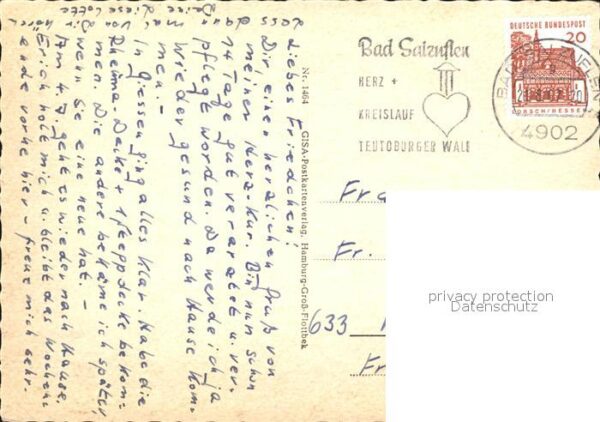 Liebes Friedchen!
Dir einen herzlichen Gruß von
meiner Herz-Kur. Bin nun schon
14 Tage gut verarztet u. ver-
pflegt worden. Da werde ich ja
wieder gesund nach Hause kom-
men. -
In Giessen ging alles klar. Habe die
Rheuma-Decke + 1 Steppdecke bekom-
men. Die andere bekäme ich später,
wenn Sie eine neue hat. -
Am 4.9. geht es wieder nach Hause.
Erich holt mich u. bleibt das Wochen-
ende vorher hier - freue mich sehr.
dass dann
mal von Dir hören
Deine
Nr. 1464
GISA-Postkartenverlag, Hamburg-Groß-Flottbek
Bad Salzuflen
HERZ +
KREISLAUF
TEUTOBURGER WALD
DEUTSCHE BUNDESPOST
20
LORSCH/HESSEN
4902
Fr
Fr.
633
Fr
privacy protection
Datenschutz